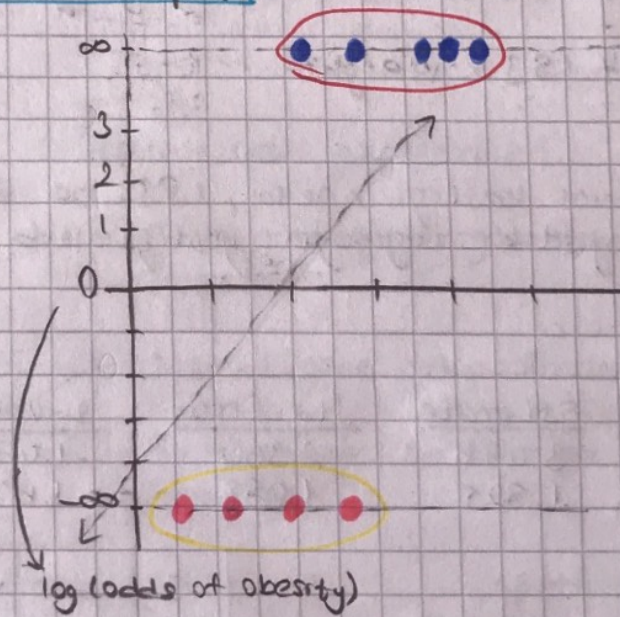 ∞
3
2
1
0
-∞
log (odds of obesity)